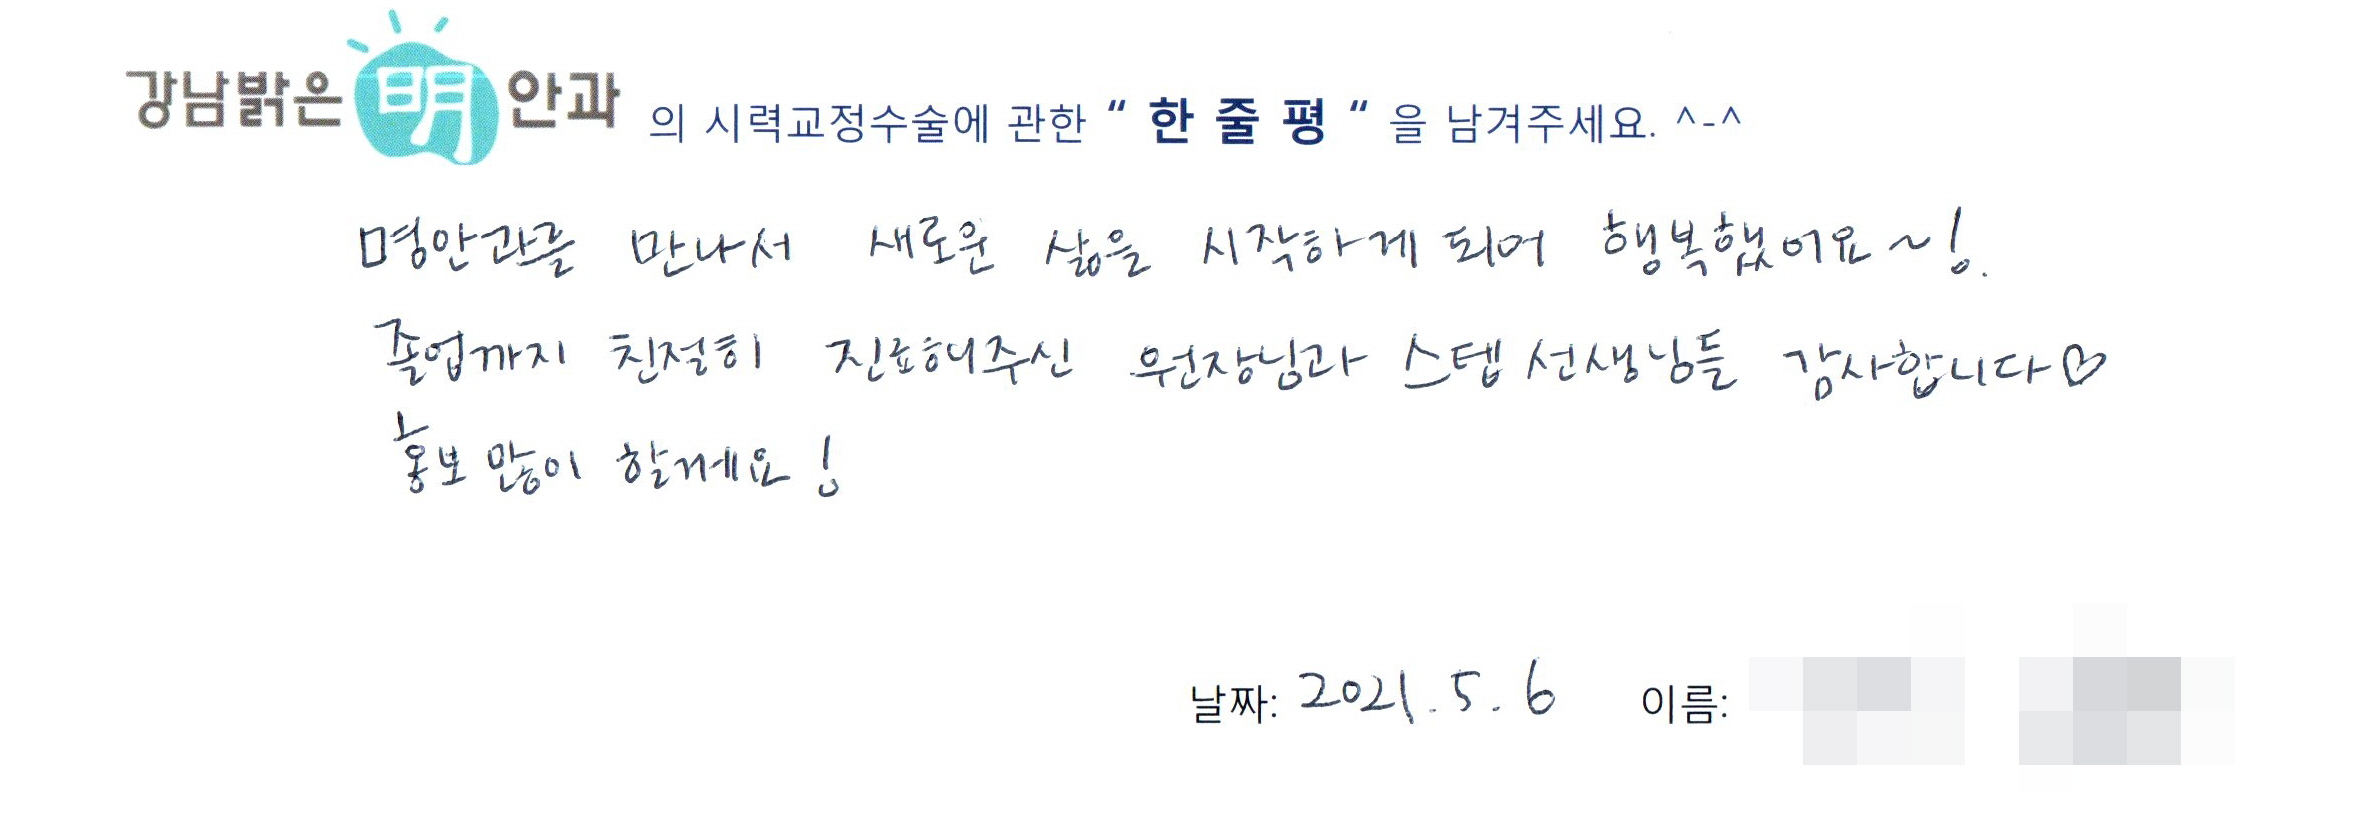 강남밝은 明 안과 의 시력교정수술에 관한 “ 한 줄 평 “ 을 남겨주세요. ^-^
명안과를 만나서 새로운 삶을 시작하게 되어 행복했어요~!.
졸업까지 친절히 진료해주신 원장님과 스텝 선생님들 감사합니다♡
홍보 많이 할께요!
날짜: 2021.5.6 이름: